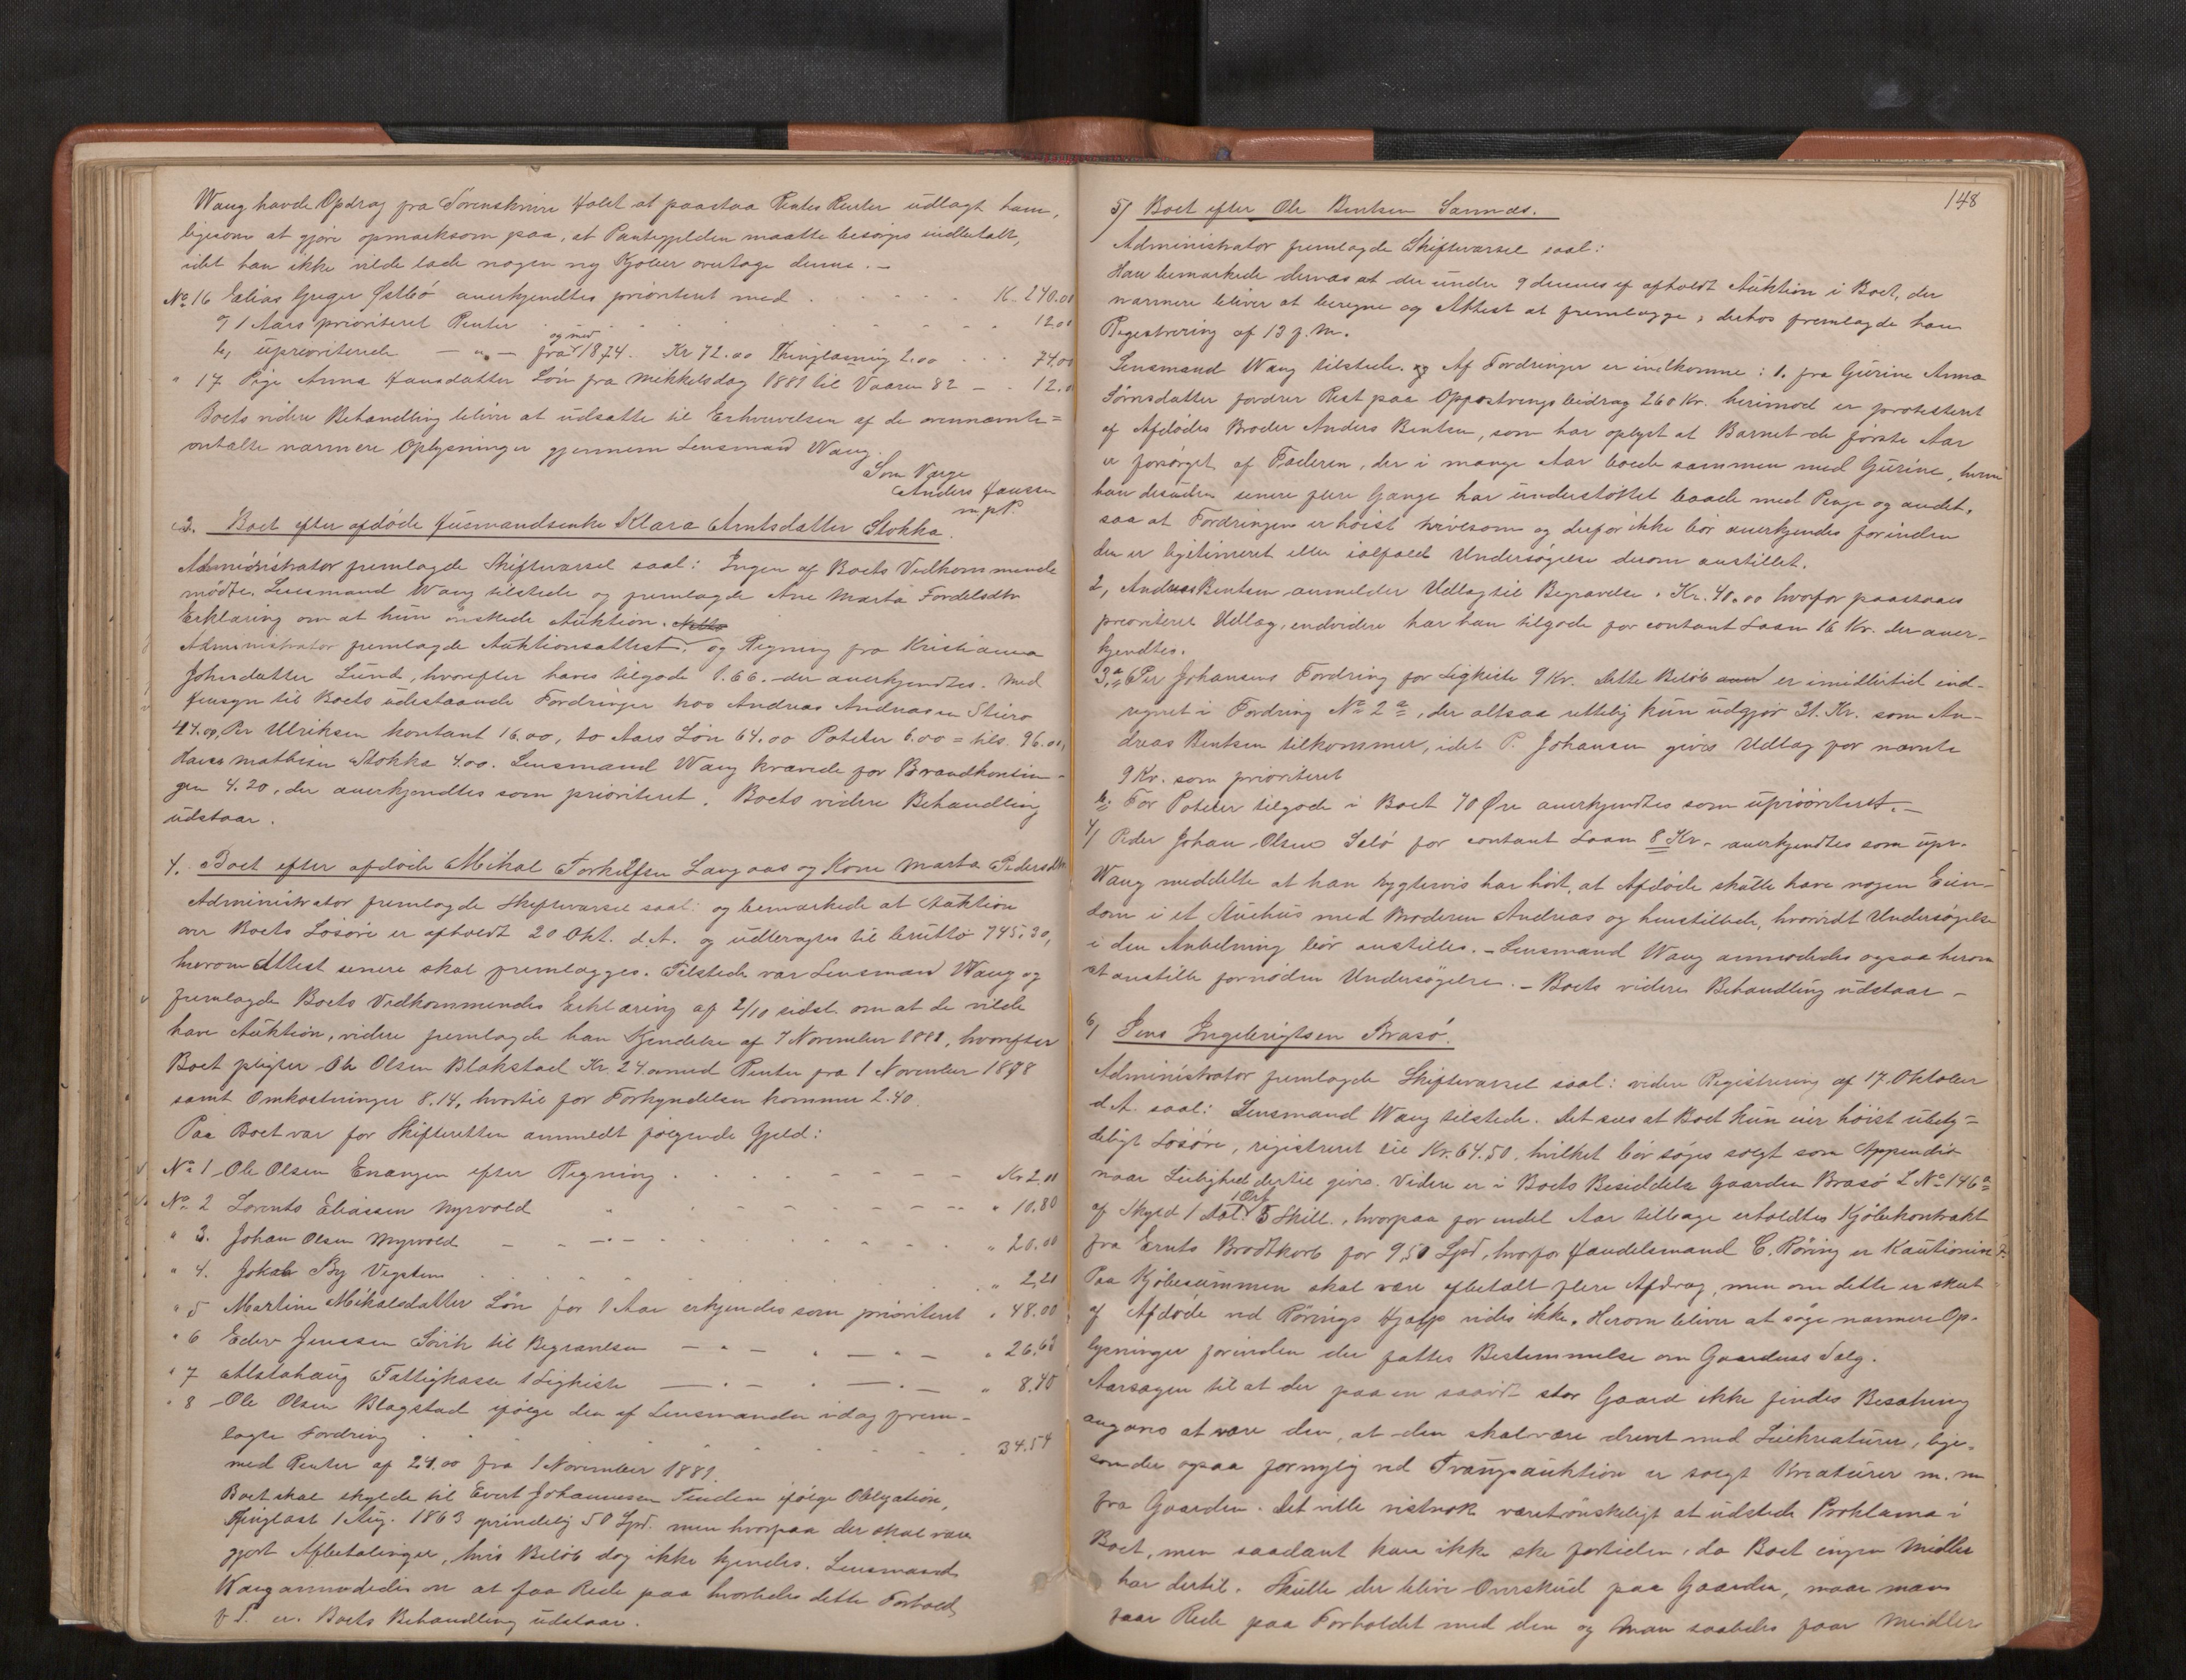 Wang havde Opdrag fra Sorenskriver Holst at paastaa Rentes Renter udlagt ham,
ligesom at gjøre opmærksom paa, at Pantegjælden maatte besørges indbetalt,
idet han ikke vilde lade nogen ny Kjøber overtage denne. -
No 16 Elias Greger Østbö anerkjendtes prioriteret med . . . . . K. 240.00
og 1 Aars prioriteret Renter . . . . . 12.00
b, uprioriterede — " — og med fra 1874. Kr 72.00 Thinglæsning 2.00 . . . 74.00
" 17 Pige Anna Hansdatter Løn fra Mikkelsdag 1881 til Vaaren 82 - . 12.0
Boets videre Behandling bliver at udsætte til Erhvervelsen af de ovennævnte=
omtalte nærmere Oplysninger gjennem Lensmand Wang.
Som Værge
Anders Hanssen
m.p.P.
3. Boet efter afdøde Husmandsenke Klara Arntsdatter Stokka.
Administrator fremlagde Skiftevarsel saal: Ingen af Boets Vedkommende
mødte. Lensmand Wang tilstede og fremlagde Ane Marta Fordelsdtr
Erklæring om at hun ønskede Auktion.
Administrator fremlagde Auktionsattest. og Regning fra Kristianna
Johnsdatter Lund, hvorefter haves tilgode 1.66. der anerkjendtes. Med
Hensyn til Boets udestaaende Fordringer hos Andreas Andreassen Stiro
44.00, Per Ulriksen kontant 16.00, to Aars Løn 64.00 Poteter 6.00 = tils. 96.00,
Hans Mathisen Stokka 4.00. Lensmand Wang krævede for Brandkontin-
gen 4.20, der anerkjendtes som prioriteret. Boets videre Behandling
udstaar.
4. Boet efter afdøde Mikal Torkilsen Langaas og Kone Marta Pedersdtr.
Administrator fremlagde Skiftevarsel saal: og bemærkede at Auktion
over Boets Løsøre er afholdt 20 Okt. d.A. og udbragtes til brutto 745.30,
hvorom Attest senere skal fremlægges. Tilstede var Lensmand Wang og
fremlagde Boets Vedkommendes Erklæring af 2/10 sidst. om at de vilde
have Auktion, videre fremlagde han Kjendelse af 7 November 1881, hvorefter
Boet pligter Ole Olsen Blakstad Kr. 24.00 med Renter fra 1 November 1878
samt Omkostninger 8.14, hvortil for Forkyndelsen kommer 2.40.
Paa Boet var for Skifteretten anmeldt følgende Gjeld:
No 1 Ole Olsen Enangen efter Regning . . . . . - - Kr 2,00
No 2 Lorents Eliassen Myrvold " . . . . . " 10.80
" 3. Johan Olsen Myrvold - - - . . . . " 20.00
" 4. Jokab By Vegsten . . . . . " 2,20
" 5 Martine Mikalsdatter Løn for 1 Aar erkjendes som prioriteret " 48.00
" 6 Eder Jenssen Søvik til Begravelsen - " - . — " — " 26.68
" 7 Alstahaug Fattigkasse 1 Ligkiste — . — . — . — " 8.40
" 8 Ole Olsen Blagstad ifølge den af Lensmanden idag frem-
lagte Fordring . . . . . 34.54
med Renter af 24.00 fra 1 November 1881.
Boet skal skylde til Evert Johannesen Tenden ifølge Obligation,
Thinglæst 1 Aug. 1863 oprindelig 50 Spd. men hvorpaa der skal være
gjort Afbetalinger, hvis Beløb dog ikke kjendes. Lensmand
Wang anmodedes om at faa Rede paa hvorledes dette Forhold
f. T. er. Boets Behandling udstaar.
148
5/ Boet efter Ole Bentsen Sannæs.
Administrator fremlagde Skiftevarsel saal:
Han bemærkede dernæst at der under 9 dennes er afholdt Auktion i Boet, der
nærmere bliver at beregne og Attest at fremlægge; derhos fremlagde han
Registrering af 13 f.M.
Lensmand Wang tilstede. og Af Fordringer er indkomne: 1. fra Gurine Anna
Sörnsdatter fordrer Rest paa Oppostrings bidrag 260 Kr. herimod er protesteret
af Afdødes Broder Anders Bentsen, som har oplyst at Barnet de første Aar
er forsörget af Faderen, der i mange Aar boede sammen med Gurine, hvem
han desuden senere flere Gange har understöttet baade med Penge og andet,
saa at Fordringen er höist tvivlsom og derfor ikke bör anerkjendes forinden
den er legitimeret eller ialfald Undersøgelse derom anstillet.
2, Andreas Bentsen anmelder Udlæg til Begravelse . Kr. 40.00 hvorfor paastaaes
prioriteret Udlæg, endvidere har han tilgode for contant Laan 16 Kr. der aner-
kjendtes.
3,a, Per Johansens Fordring for Ligkiste 9 Kr. Dette Beløb er imidlertid ind-
regnet i Fordring No 2 a, der altsaa rettelig kun udgjør 31. Kr. som An-
dreas Bentsen tilkommer, idet P. Johansen gives Udlæg for nævnte
9 Kr. som prioriteret
b: For Poteter tilgode i Boet 70 Øre anerkjendtes som uprioriteret. -
4/ Peder Johan Olsen Selö for contant Laan 8 Kr. anerkjendtes som upr.
Wang meddelte at han rygtevis har hört, at Afdøde skulle have nogen Eien-
dom i et Stuehus med Broderen Andreas og henstillede, hvorvidt Undersøgelse
i den Anledning bör anstilles. - Lensmand Wang anmodedes ogsaa herom
at anstille fornöden Undersögelse. - Boets videre Behandling udstaar -
6/ Jens Ingebrigtsen Brasö.
Administrator fremlagde Skiftevarsel saal: videre Registrering af 17. Oktober
d.A. saal: Lensmand Wang tilstede. Det sees at Boet kun eier höist ubety=
deligt Lösöre, registreret til Kr. 64.50. hvilket bör söges solgt som Appendix
naar Leilighed dertil gives. Videre er i Boets Besiddelse Gaarden Brasö L No 146 a
af Skyld 1 Dal. 1 Ort 5 Skill., hvorpaa for endel Aar tilbage erholdtes Kjöbekontrakt
fra Ernts Brodtkorb for 950 Spd, hvorfor Handelsmand C. Röring er Kautionist.
Paa Kjöbesummen skal være afbetalt flere Afdrag, men om dette er skeet
af Afdøde ved Rörings Hjælp vides ikke. Herom bliver at söge nærmere Op-
lysninger forinden der fattes Bestemmelse om Gaardens Salg.
Aarsagen til at der paa en saavidt stor Gaard ikke findes Besætning
angives at være den, at den skal være drevet med Leiekreaturer, lige-
som der ogsaa fornylig ved Tvangsauktion er solgt Kreaturer m.m
fra Gaarden. Det ville vistnok været önskeligt at udstede Proklama i
Boet, men saadant kan ikke ske fortiden, da Boet ingen Midler
har dertil. Skulle der blive Overskud paa Gaarden, naar man
faar Rede paa Forholdet med den og man saaledes faar Midler